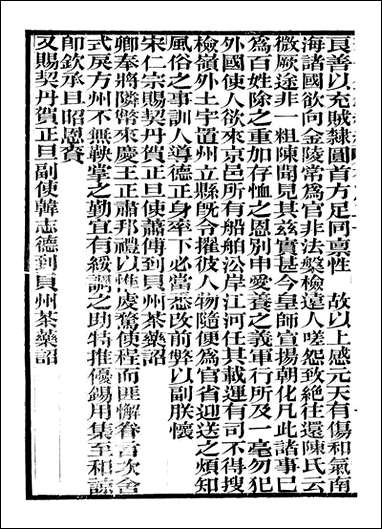 良善以充賊隸圓首方足同禀性　故以上感元天有傷和氣南
海諸國欲向金陵常為官非法㮣檢遠人嗟怨致絶往還陳氏云
微厥途非一粗陳聞見其兹實甚今皇師宣揚朝化凡此諸事已
為百姓除之重加存恤之恩別申愛養之義軍行所及一毫勿犯
外國使人欲來京邑所有船舶沿岸江河任其載運有司不得搜
檢嶺外土宇置州立縣旣合擢彼人物隨便為官省迎送之煩知
風俗之事訓人導德正身率下必當悉改前弊以副朕懷
宋仁宗賜契丹賀正旦使蕭傳到貝州茶藥詔
卿奉將隣幣來慶王正肅邦禮以惟虔騖使程而匪懈眷言次舍
式戾方州不無鞅掌之勤宜有綏調之助特推優錫用集至和諒
師欽承旦昭恩賚
又賜契丹賀正旦副使韓志德到貝州茶藥詔